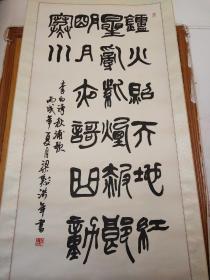 鑪火照天地紅
星亂紫煙赧郎
明月夜謌曲動
寒川
李白詩秋浦歌
丙戌年夏月梁年書